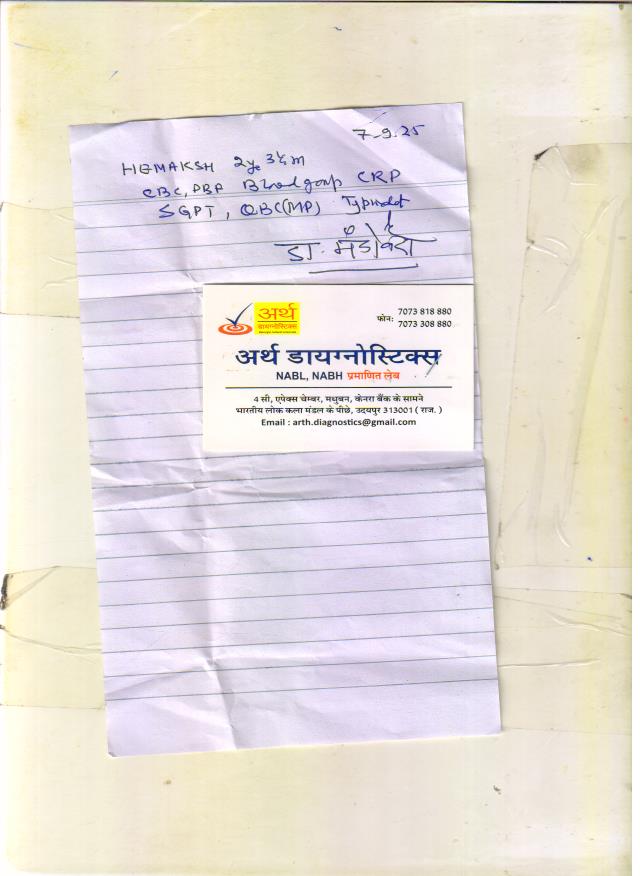 7-9-25
HEMAKSH 2ye 3½ m
CBC, PBF Blood group CRP
SGPT, QBC(MP) Typhidot
डा. मंडोवरा
अर्थ
डायग्नोस्टिक्स
फोन: 7073 818 880
7073 308 880
अर्थ डायग्नोस्टिक्स
NABL, NABH प्रमाणित लेब
4 सी, एपेक्स चेम्बर, मधुबन, केनरा बैंक के सामने
भारतीय लोक कला मंडल के पीछे, उदयपुर 313001 ( राज. )
Email : arth.diagnostics@gmail.com